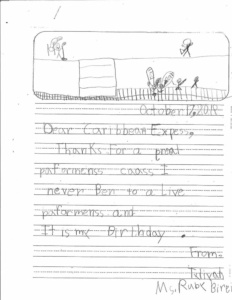 October 17, 2014
Dear Caribbean Express,
Thanks For a great
paformenss caass I
never Ben to a Live
paformenss and
It is my Birthday.
From:
Ms. Ruby